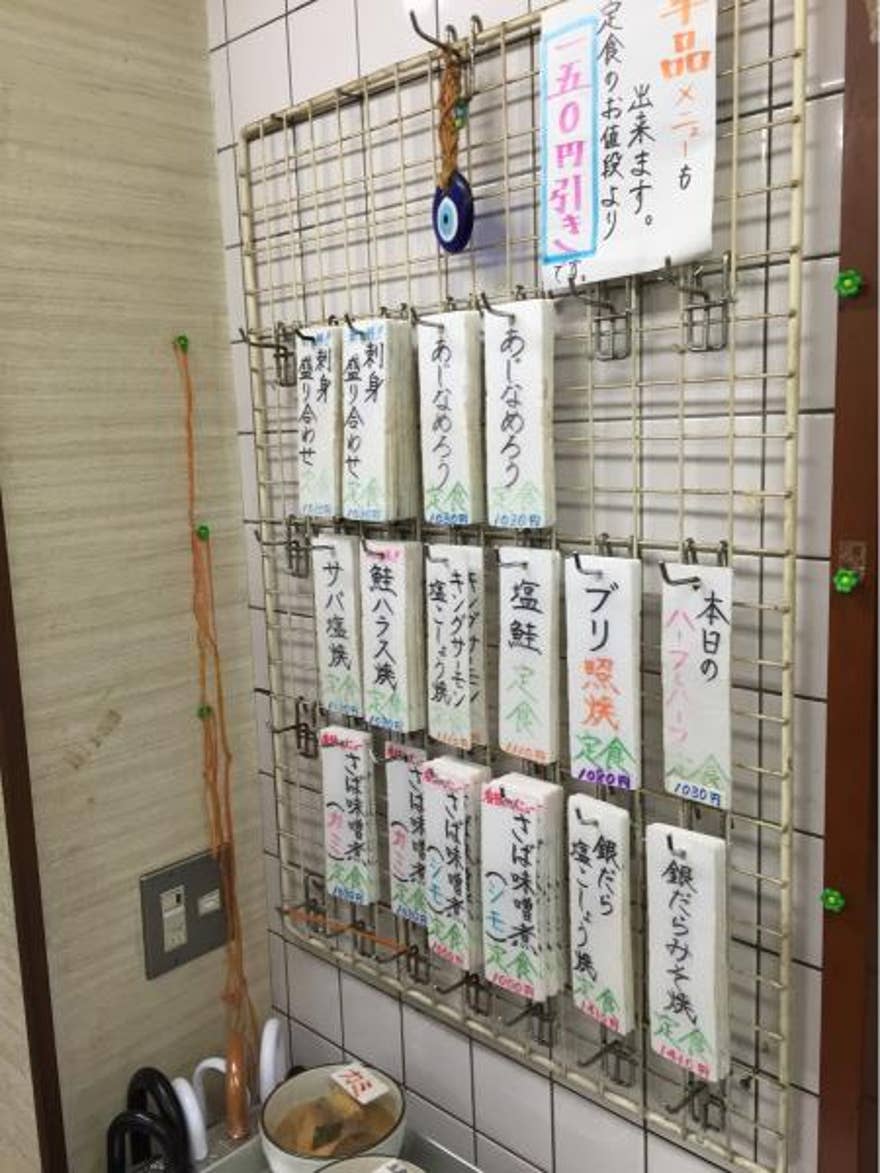 単品メニューも
出来ます。
定食のお値段より
一五〇円引き
です。
刺身
盛り合わせ
定食
刺身
盛り合わせ
定食
1030円
あじなめろう
定食
1030円
あじなめろう
定食
1030円
サバ塩焼
定食
鮭ハラス焼
定食
1030円
キングサーモン
塩こしょう焼
キングサーモン
塩鮭
定食
ブリ
照焼
定食
1080円
本日の
ハーフ&ハーフ
定食
1030円
さば味噌煮
(カミ)
定食
さば味噌煮
(カミ)
定食
さば味噌煮
(シモ)
定食
さば味噌煮
(シモ)
定食
銀だら
塩こしょう焼
定食
銀だらみそ焼
定食
1410円
カミ